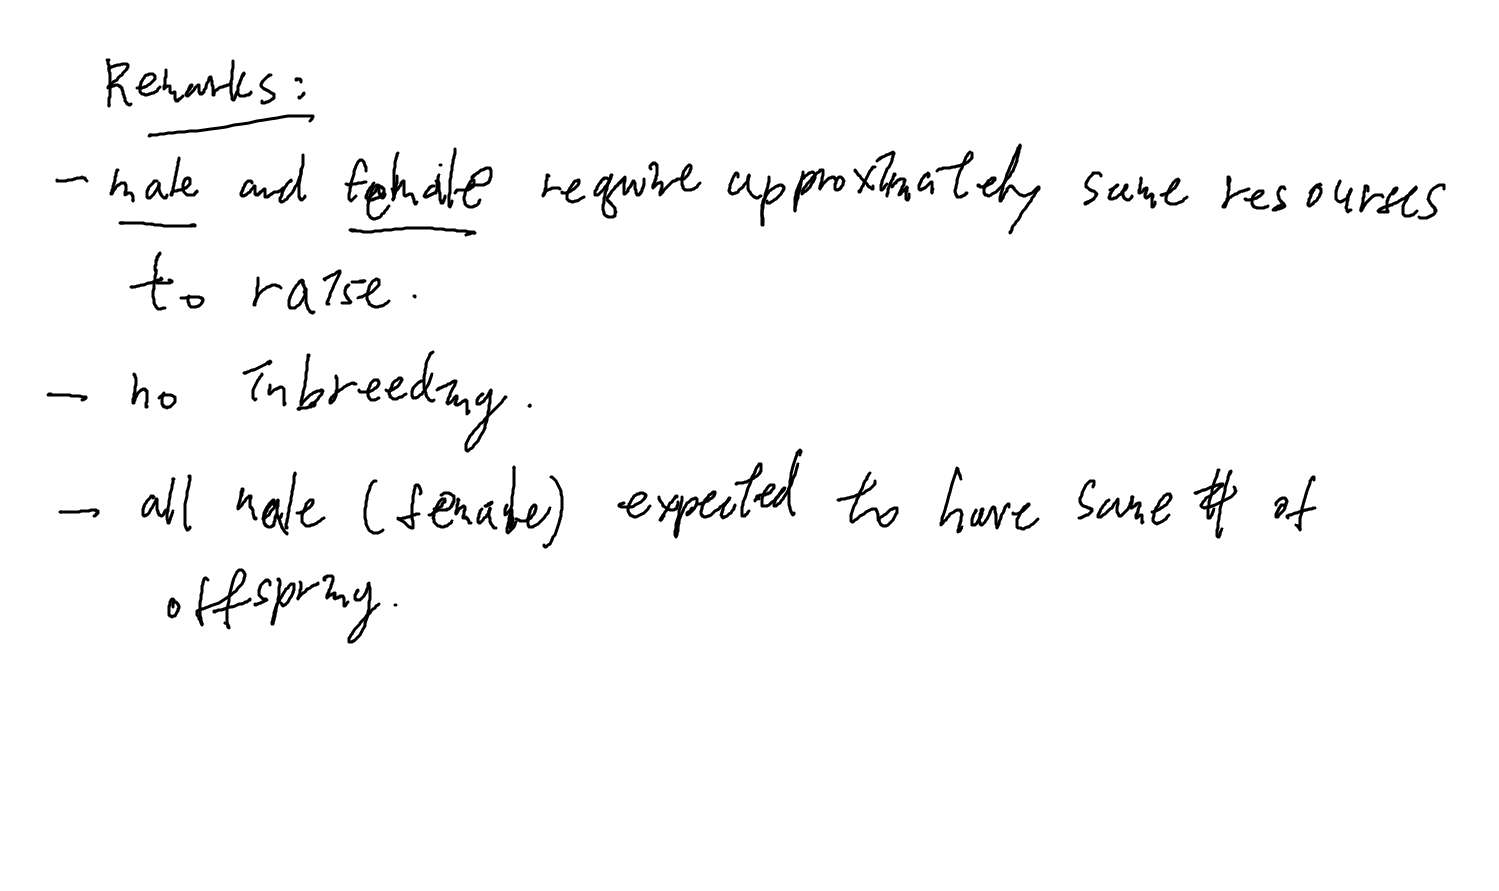 Remarks:
- male and female require approximately same resourses
to raise.
- no inbreeding.
- all male (female) expected to have same # of
offspring.